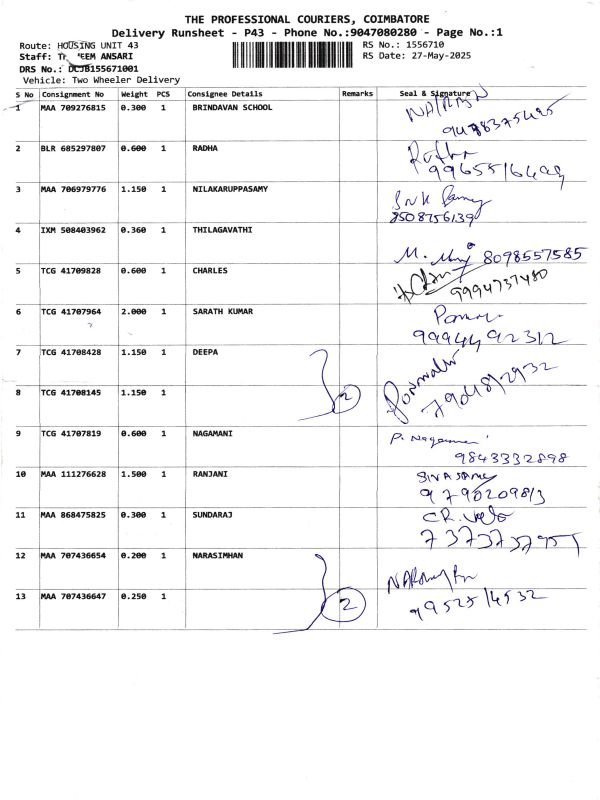 THE PROFESSIONAL COURIERS, COIMBATORE
Delivery Runsheet - P43 - Phone No.:9047080280 - Page No.:1
Route: HOUSING UNIT 43
RS No.: 1556710
Staff: EEM ANSARI
RS Date: 27-May-2025
DRS No.: DCJB155671001
Vehicle: Two Wheeler Delivery
S No Consignment No Weight PCS Consignee Details Remarks Seal & Signature
1 MAA 709276815 0.300 1 BRINDAVAN SCHOOL
9478375495
2 BLR 685297807 0.600 1 RADHA
3 MAA 706979776 1.150 1 NILAKARUPPASAMY
8508756139
4 IXM 508403962 0.360 1 THILAGAVATHI
8098557585
5 TCG 41709828 0.600 1 CHARLES
9994737480
6 TCG 41707964 2.000 1 SARATH KUMAR
9994492312
7 TCG 41708428 1.150 1 DEEPA
2
8 TCG 41708145 1.150 1
9 TCG 41707819 0.600 1 NAGAMANI
P. Nagamani
9843332898
10 MAA 111276628 1.500 1 RANJANI
SIVASAMY
9790209813
11 MAA 868475825 0.300 1 SUNDARAJ
7373737955
12 MAA 707436654 0.200 1 NARASIMHAN
13 MAA 707436647 0.250 1
2
9952514532